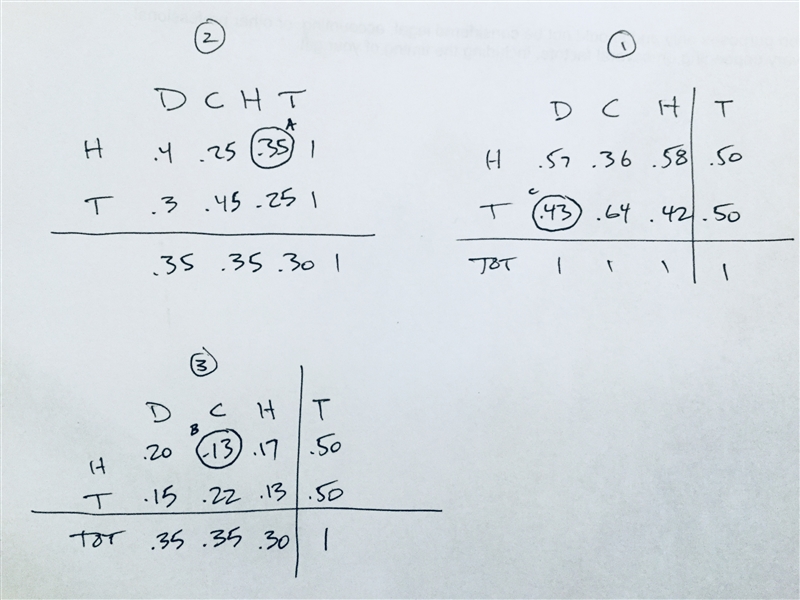 2
D C H T
A
H .4 .25 .35 1
T .3 .45 .25 1
.35 .35 .30 1
1
D C H T
H .57 .36 .58 .50
C
T .43 .64 .42 .50
TOT 1 1 1 1
3
D C H T
B
H .20 .13 .17 .50
T .15 .22 .13 .50
TOT .35 .35 .30 1